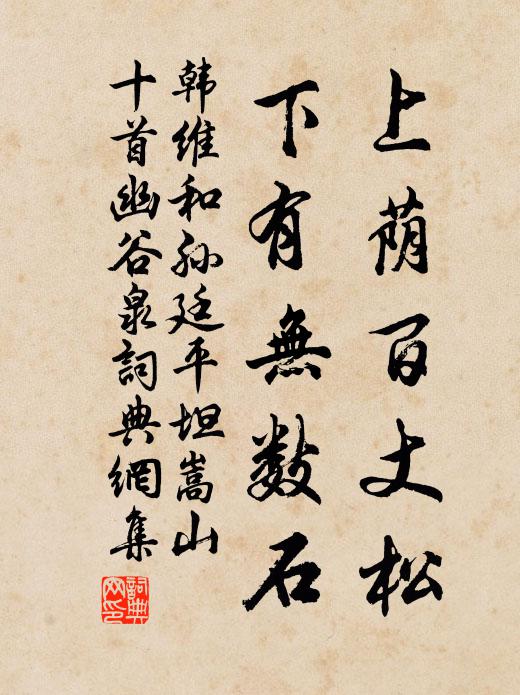 上荫百丈松
下有無数石
韩维和孙廷平坦嵩山
十首幽谷泉詞典網集
詞典网印